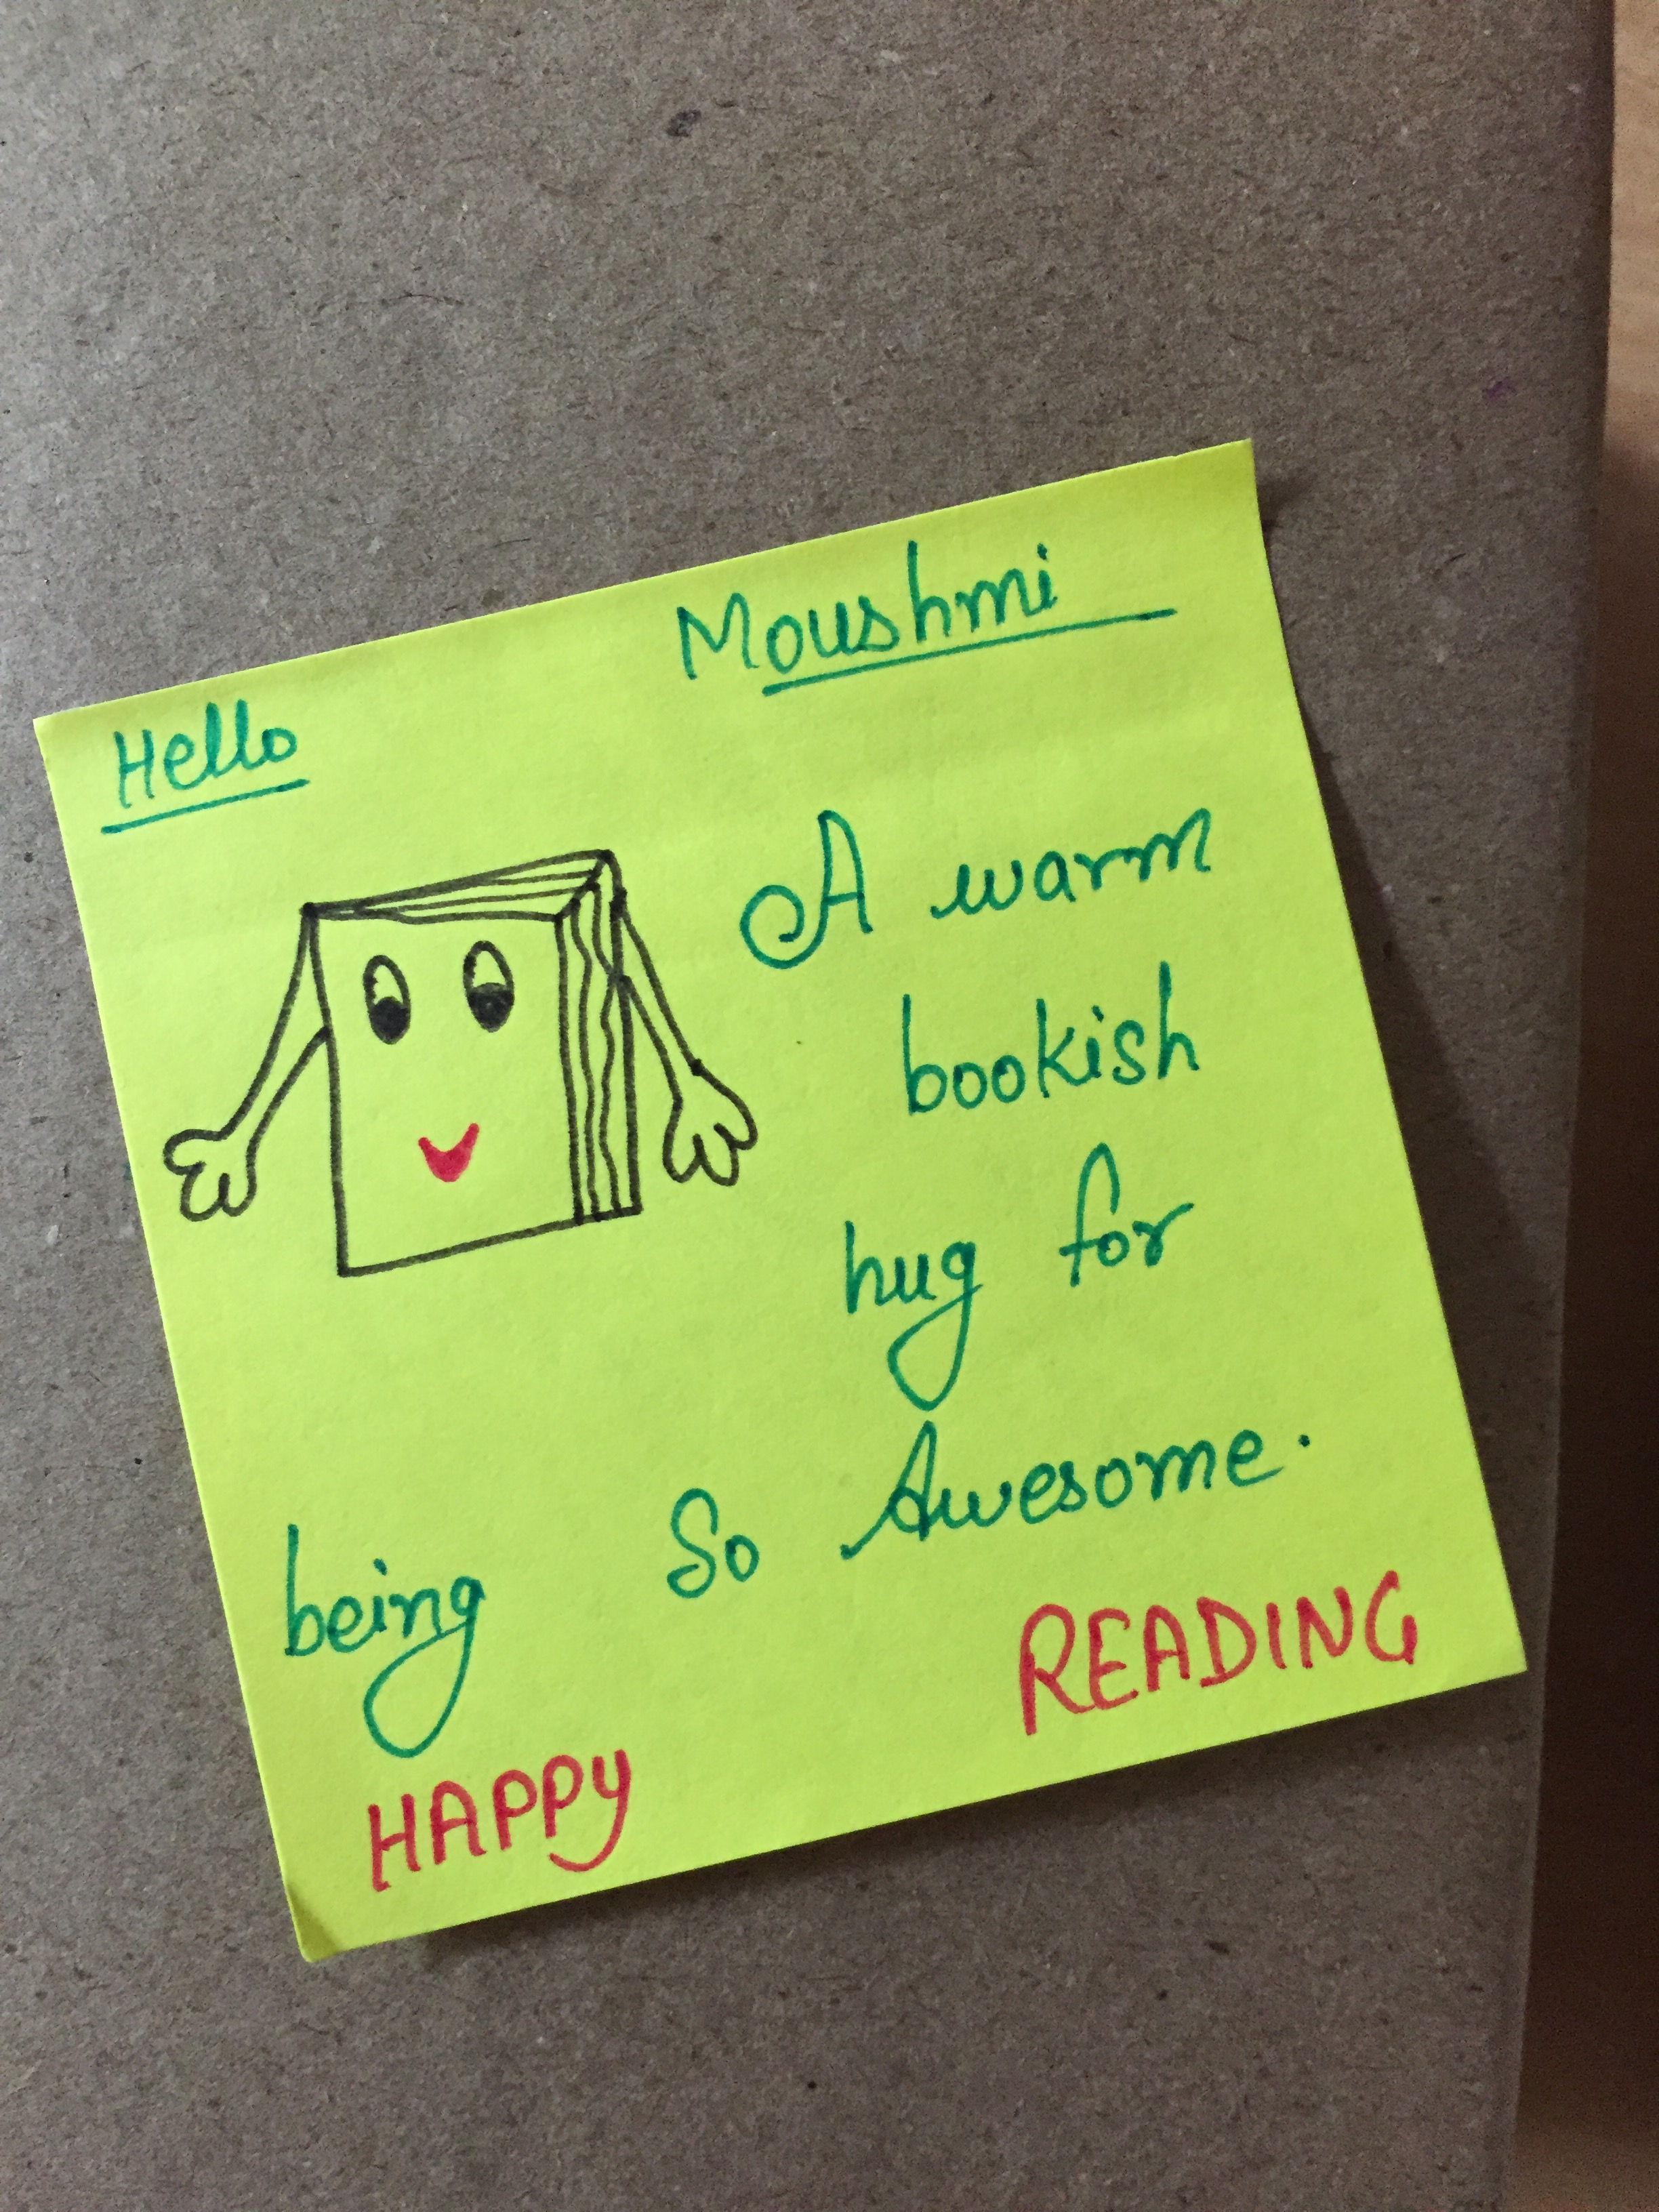 Hello Moushmi
A warm
bookish
hug for
being So Awesome.
HAPPY READING